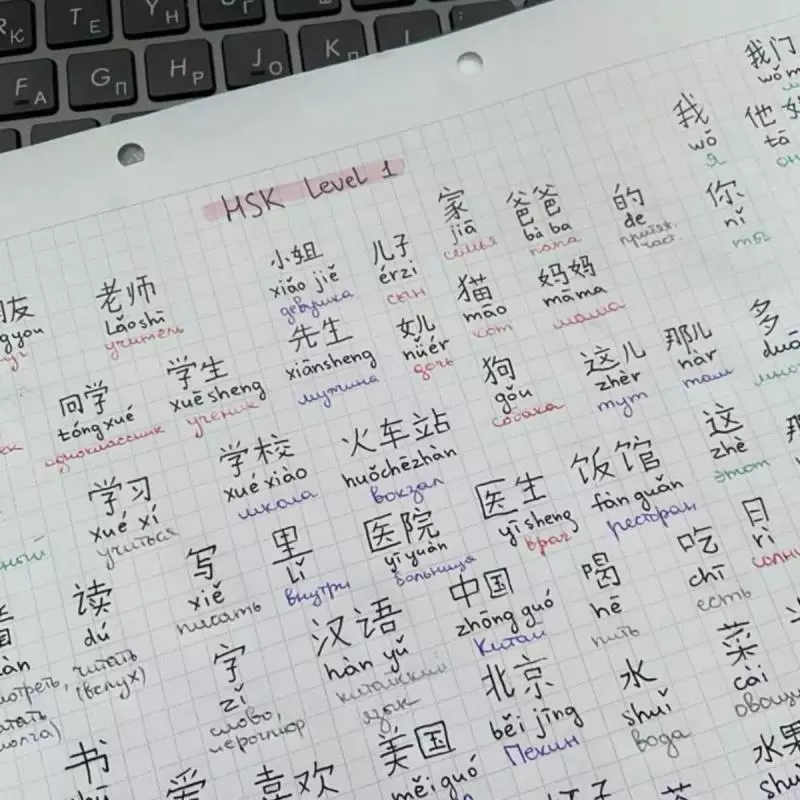 HSK Level 1
我们
wǒ m
我
wǒ
я
他
tā
он
家
jiā
семья
爸爸
bà ba
папа
的
de
притяж.
част.
你
nǐ
ты
老师
Lǎoshī
учитель
小姐
xiǎo jiě
девушка
儿子
érzi
сын
猫
māo
кот
妈妈
māma
мама
同学
tóngxué
одноклассник
学生
xuésheng
ученик
先生
xiānsheng
мужчина
女儿
nǚér
дочь
狗
gǒu
собака
这儿
zhèr
тут
那儿
nàr
там
多
duō
много
学习
xué xí
учиться
学校
xué xiào
школа
火车站
huǒchēzhàn
вокзал
医生
yīsheng
врач
饭馆
fàn guǎn
ресторан
这
zhè
этот
读
dú
читать
(вслух)
写
xiě
писать
里
lǐ
внутри
医院
yī yuàn
больница
中国
zhōng guó
Китай
喝
hē
пить
吃
chī
есть
日
rì
字
zì
слово,
иероглиф
汉语
hàn yǔ
китайский
язык
北京
běi jīng
Пекин
水
shuǐ
вода
菜
cài
书
爱
喜欢
美国
měi guó
水果